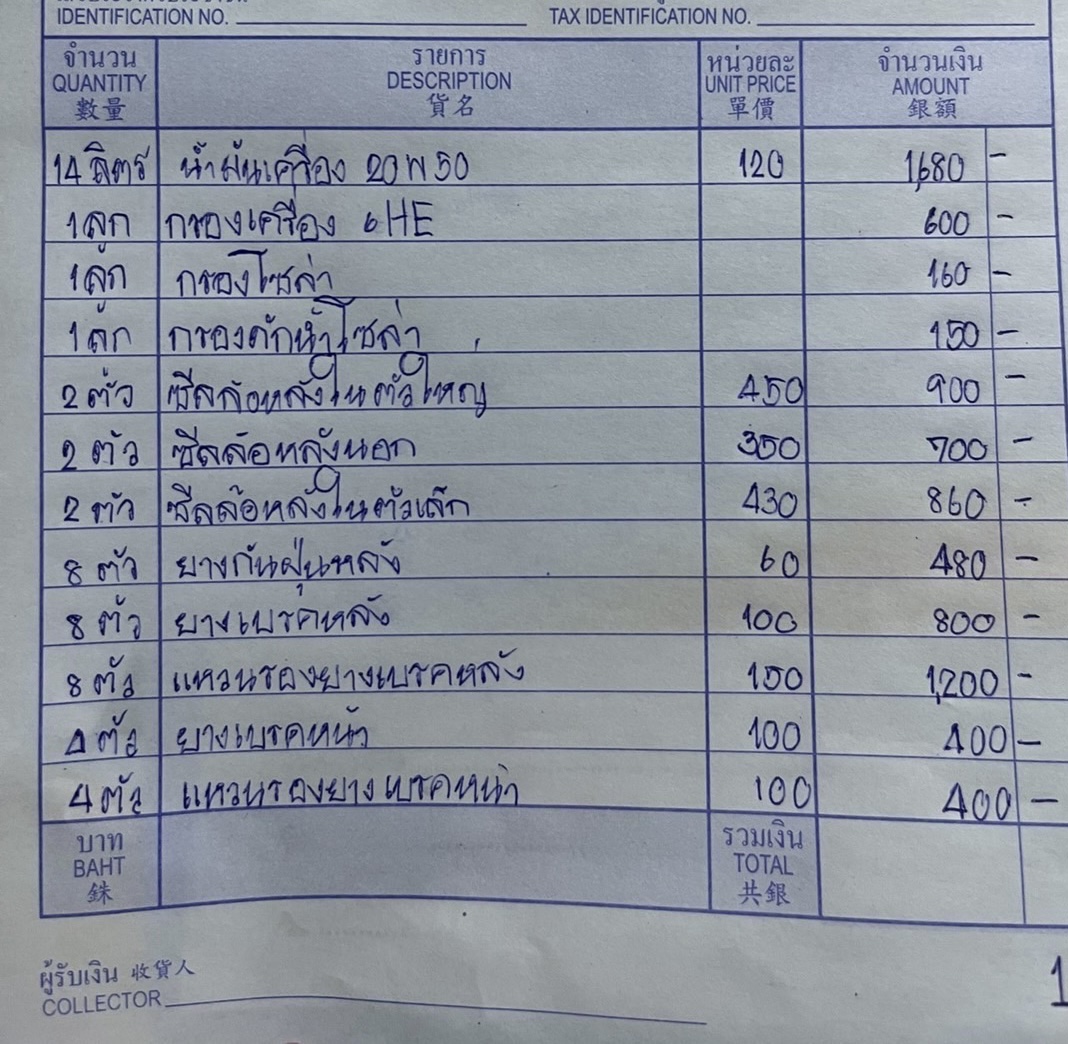 IDENTIFICATION NO.
TAX IDENTIFICATION NO.
จำนวน รายการ หน่วยละ จำนวนเงิน
QUANTITY DESCRIPTION UNIT PRICE AMOUNT
數量 貨名 單價 銀額
14 ลิตร น้ำมันเครื่อง 20W50 120 1,680 -
1 ลูก กรองเครื่อง 6HE 600 -
1 ลูก กรองโซล่า 160 -
1 ลูก กรองดักน้ำโซล่า 150 -
2 ตัว ซีลล้อหลังในตัวใหญ่ 450 900 -
2 ตัว ซีลล้อหลังนอก 350 700 -
2 ตัว ซีลล้อหลังในตัวเล็ก 430 860 -
8 ตัว ยางกันฝุ่นหลัง 60 480 -
8 ตัว ยางเบรคหลัง 100 800 -
8 ตัว แหวนรองยางเบรคหลัง 150 1,200 -
4 ตัว ยางเบรคหน้า 100 400 -
4 ตัว แหวนรองยางเบรคหน้า 100 400 -
บาท รวมเงิน
BAHT TOTAL
銖 共銀
ผู้รับเงิน 收貨人
COLLECTOR
1